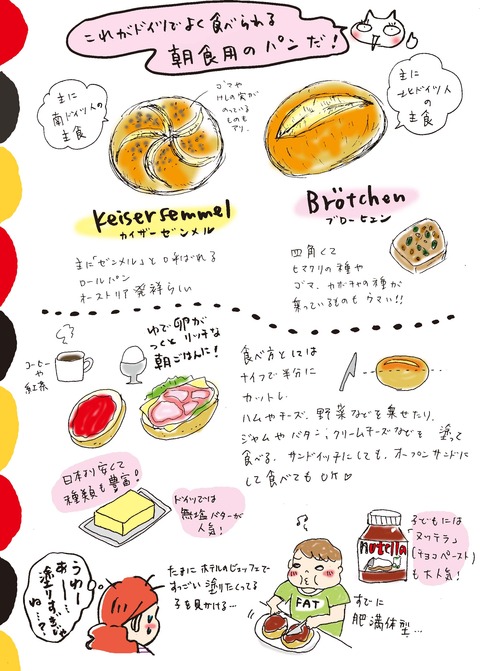 これがドイツでよく食べられる
朝食用のパンだ!
主に
南ドイツ人の
主食
ゴマや
ケシの実が
のっている
ものも
アリ.
主に
北ドイツ人
の
主食
Keisersemmel
カイザーゼンメル
Brötchen
ブローヒェン
主に「ゼンメル」と呼ばれる
ロールパン
オーストリア発祥らしい
四角くて
ヒマワリの種や
ゴマ、カボチャの種が
乗っているものもウマい!!
コーヒー
や
紅茶
ゆで卵が
つくとリッチな
朝ごはんに!
食べ方としては
ナイフで半分に
カットし
ハムやチーズ、野菜などを乗せたり、
ジャムやバター、クリームチーズなどを塗って
食べる。サンドイッチにしても、オープンサンドに
して食べてもOK♡
日本より安くて
種類も豊富!
ドイツでは
無塩バターが
人気!
子どもには
「ヌッテラ」
(チョコペースト)
も大人気!
nutella
うわー
あー…
塗りすぎじゃ
ね…?
たまにホテルのビュッフェで
すっごい塗りたくってる
子を見かける…
FAT
すでに
肥満体型…